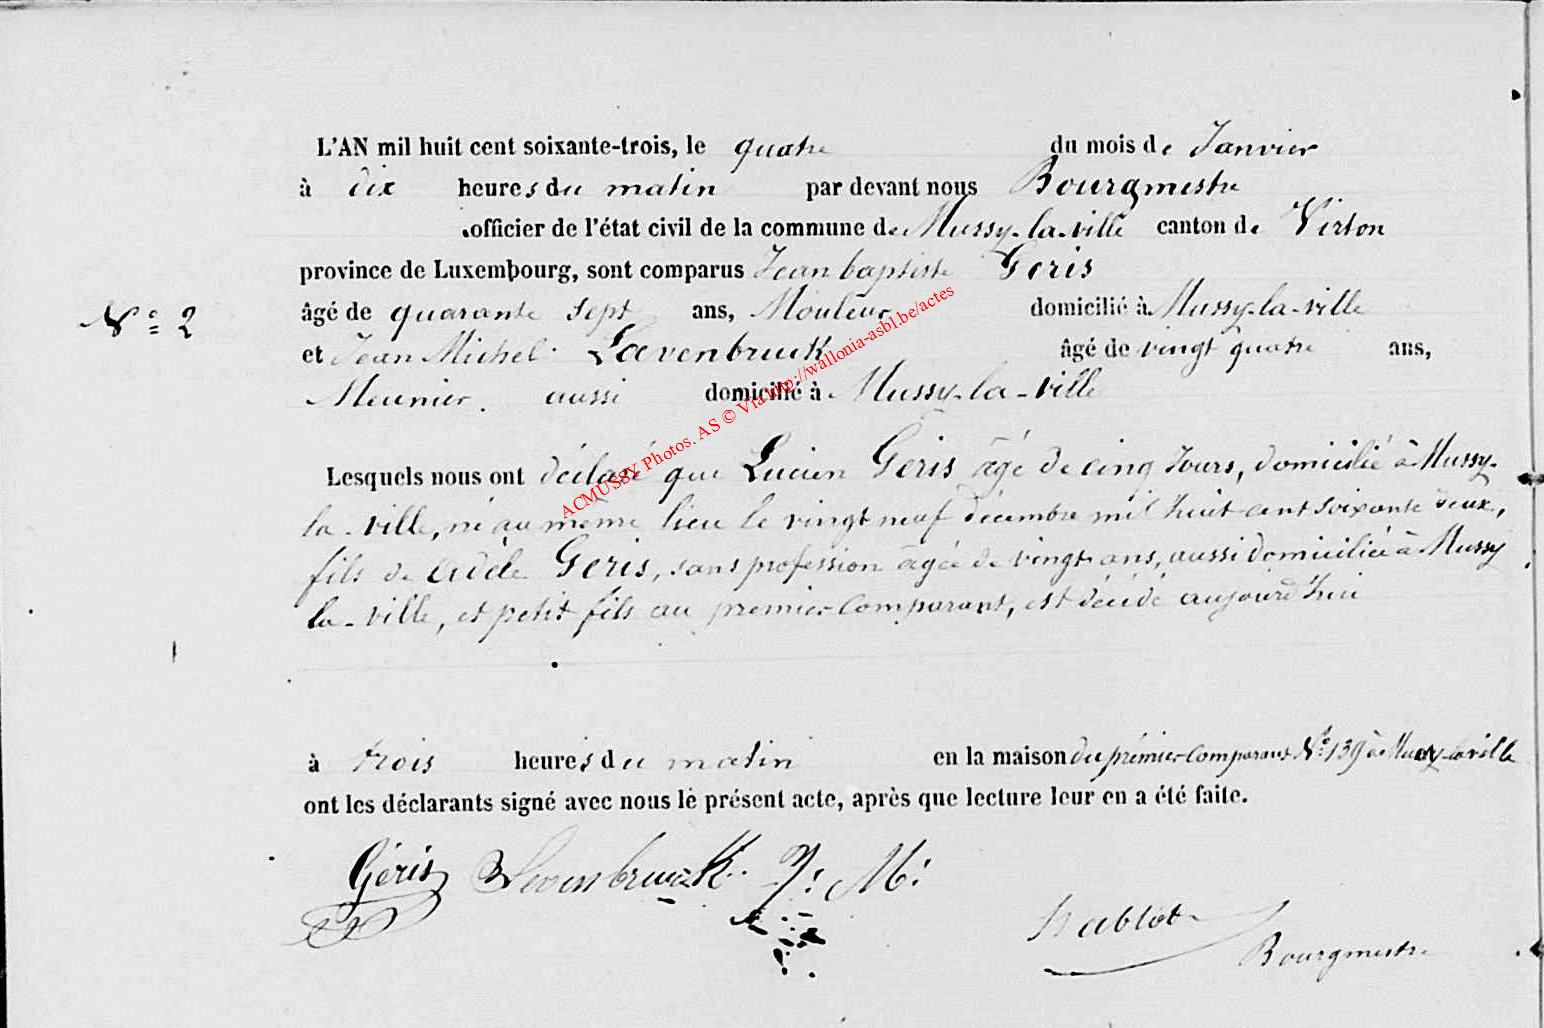 L'AN mil huit cent soixante-trois, le quatre du mois de Janvier
à dix heures du matin par devant nous Bourgmestre
officier de l'état civil de la commune de Mussy-la-ville canton de Virton
province de Luxembourg, sont comparus Jean baptiste Geris
N° 2
âgé de quarante sept ans, Mouleur domicilié à Mussy-la-ville
et Jean Michel Loevenbruck âgé de vingt quatre ans,
Meunier. aussi domicilié à Mussy-la-ville
ACMUSSY Photos. AS © Via http://wallonia-asbl.be/actes
Lesquels nous ont déclaré que Lucien Geris âgé de cinq Jours, domicilié à Mussy-
la-ville, né au même lieu le vingt neuf décembre mil huit cent soixante deux,
fils de Adèle Geris, sans profession âgée de vingt ans, aussi domiciliée à Mussy
la-ville, et petit fils au premier comparant, est décédé aujourd'hui
à trois heures du matin en la maison du prémier comparant N° 139 à Mussy-la-ville
ont les déclarants signé avec nous le présent acte, après que lecture leur en a été faite.
Géris Levenbruck J: M:
Hablot
Bourgmestre